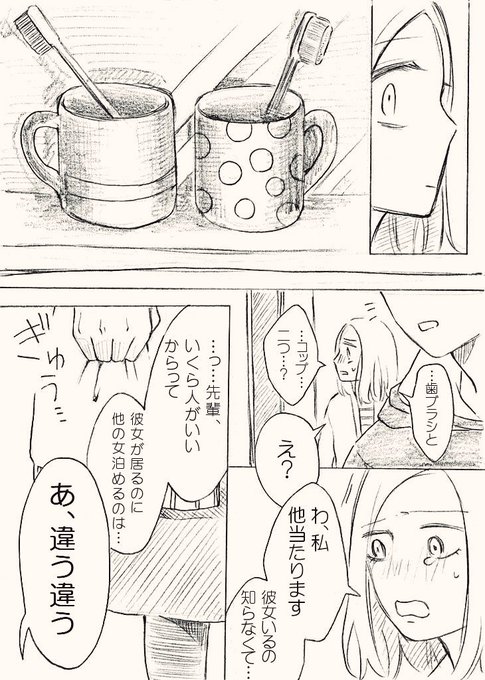 …歯ブラシと
…コップ…
二つ…？
え？
わ、私
他当たります
彼女いるの
知らなくて…
…っ…先輩、
いくら人がいい
からって
彼女が居るのに
他の女泊めるのは…
ぎゅう
あ、違う違う